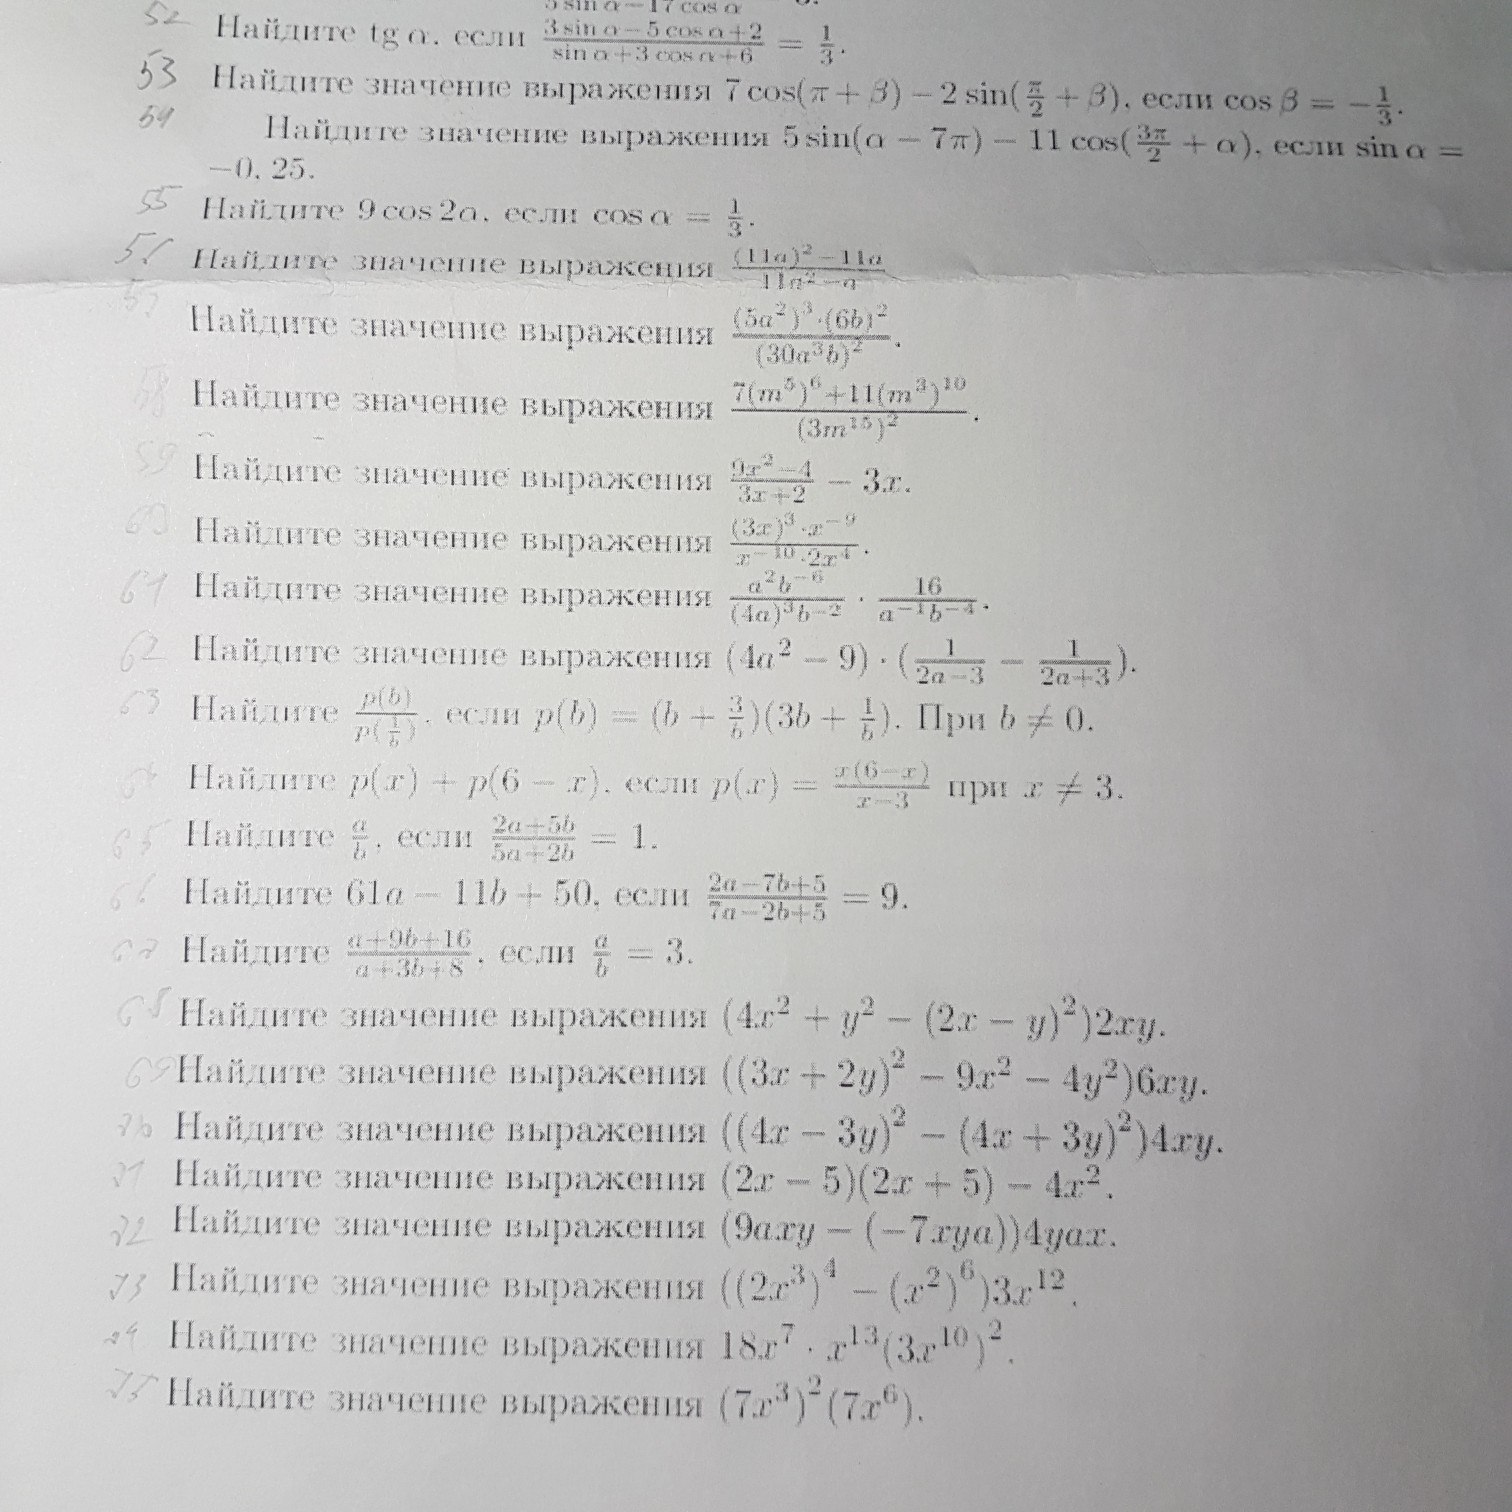 5 sin α−17 cos α
52 Найдите tg α, если (3 sin α−5 cos α+2)/(sin α+3 cos α+6) = 1/3.
53 Найдите значение выражения 7 cos(π + β) − 2 sin(π/2 + β), если cos β = −1/3.
54 Найдите значение выражения 5 sin(α − 7π) − 11 cos(3π/2 + α), если sin α =
−0, 25.
55 Найдите 9 cos 2α, если cos α = 1/3.
56 Найдите значение выражения ((11a)²−11a)/(11a²−a)
57 Найдите значение выражения ((5a²)³·(6b)²)/(30a³b)².
58 Найдите значение выражения (7(m⁵)⁶+11(m³)¹⁰)/(3m¹⁵)².
59 Найдите значение выражения (9x²−4)/(3x+2) − 3x.
60 Найдите значение выражения ((3x)³·x⁻⁹)/(x⁻¹⁰·2x⁴).
61 Найдите значение выражения (a²b⁻⁶)/((4a)³b⁻²) · 16/(a⁻¹b⁻⁴).
62 Найдите значение выражения (4a² − 9) · (1/(2a−3) − 1/(2a+3)).
63 Найдите p(b)/p(1/b), если p(b) = (b + 3/b)(3b + 1/b). При b ≠ 0.
64 Найдите p(x) + p(6 − x), если p(x) = x(6−x)/(x−3) при x ≠ 3.
65 Найдите a/b, если (2a+5b)/(5a+2b) = 1.
66 Найдите 61a − 11b + 50, если (2a−7b+5)/(7a−2b+5) = 9.
67 Найдите (a+9b+16)/(a+3b+8), если a/b = 3.
68 Найдите значение выражения (4x² + y² − (2x − y)²)2xy.
69 Найдите значение выражения ((3x + 2y)² − 9x² − 4y²)6xy.
70 Найдите значение выражения ((4x − 3y)² − (4x + 3y)²)4xy.
71 Найдите значение выражения (2x − 5)(2x + 5) − 4x².
72 Найдите значение выражения (9axy − (−7xya))4yax.
73 Найдите значение выражения ((2x³)⁴ − (x²)⁶)3x¹².
74 Найдите значение выражения 18x⁷ · x¹³(3x¹⁰)².
75 Найдите значение выражения (7x³)²(7x⁶).